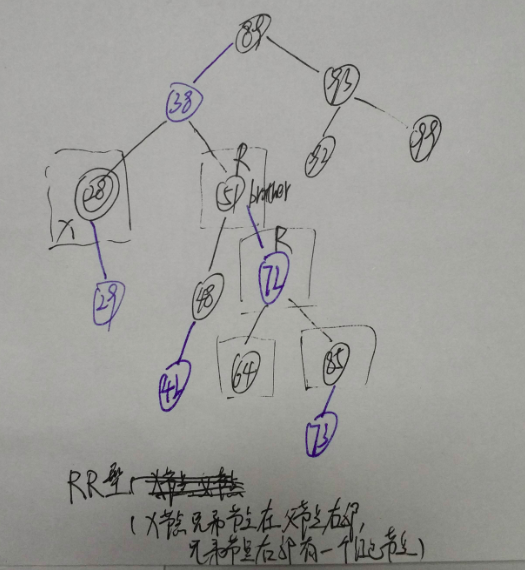 89
38
93
R
28
51 brother
92
99
X
R
29
48
72
41
64
85
73
RR型:
(X节点兄弟节点在父节点右部,
兄弟节点右部有一个红色节点)